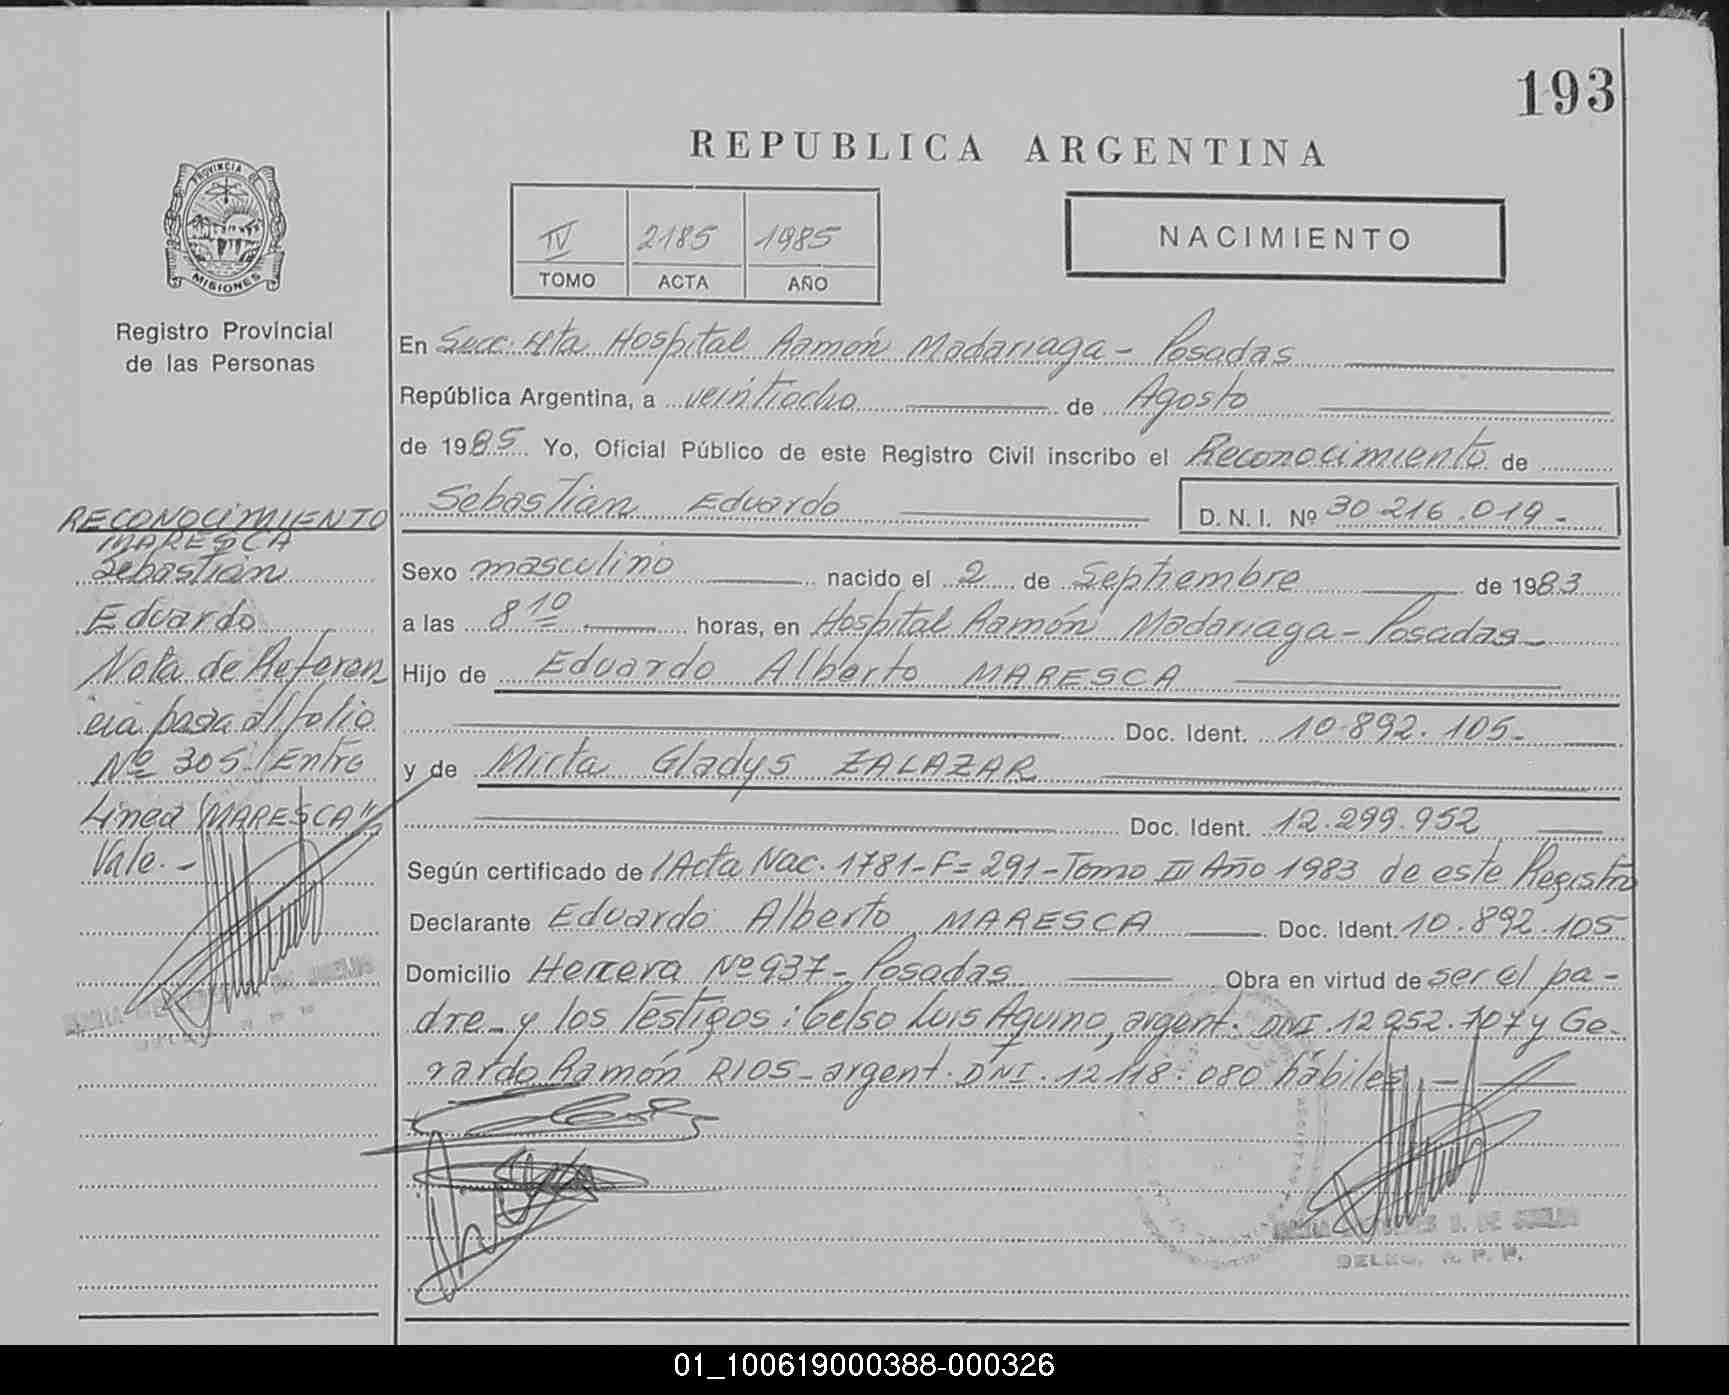 193
REPUBLICA ARGENTINA
PROVINCIA DE
MISIONES
Registro Provincial
de las Personas
IV 2185 1985
TOMO ACTA AÑO
NACIMIENTO
En Secc. 4ta Hospital Ramón Madariaga - Posadas
República Argentina, a veintiocho de Agosto
de 1985 Yo, Oficial Público de este Registro Civil inscribo el Reconocimiento de
Sebastian Eduardo D.N.I. Nº 30.216.019.-
Sexo masculino nacido el 2 de Septiembre de 1983
a las 8 10 horas, en Hospital Ramón Madariaga - Posadas
Hijo de Eduardo Alberto MARESCA
Doc. Ident. 10.892.105-
y de Mirta Gladys ZALAZAR
Doc. Ident. 12.299.952
Según certificado de /Acta Nac. 1781-F=291-Tomo III Año 1983 de este Registro
Declarante Eduardo Alberto MARESCA Doc. Ident. 10.892.105
Domicilio Herrera Nº 937- Posadas Obra en virtud de ser el pa-
dre - y los Testigos: Celso Luis Aquino, argent. DNI. 12.252.707 y Ge-
rardo Ramón RIOS - argent. DNI. 12.118.080 hábiles.-
RECONOCIMIENTO
MARESCA
Sebastian
Eduardo
Nota de Referen
cia pasa al folio
Nº 305. Entre
Linea "MARESCA"
Vale.-
DE
DELEG. R. P. P.
01_100619000388-000326